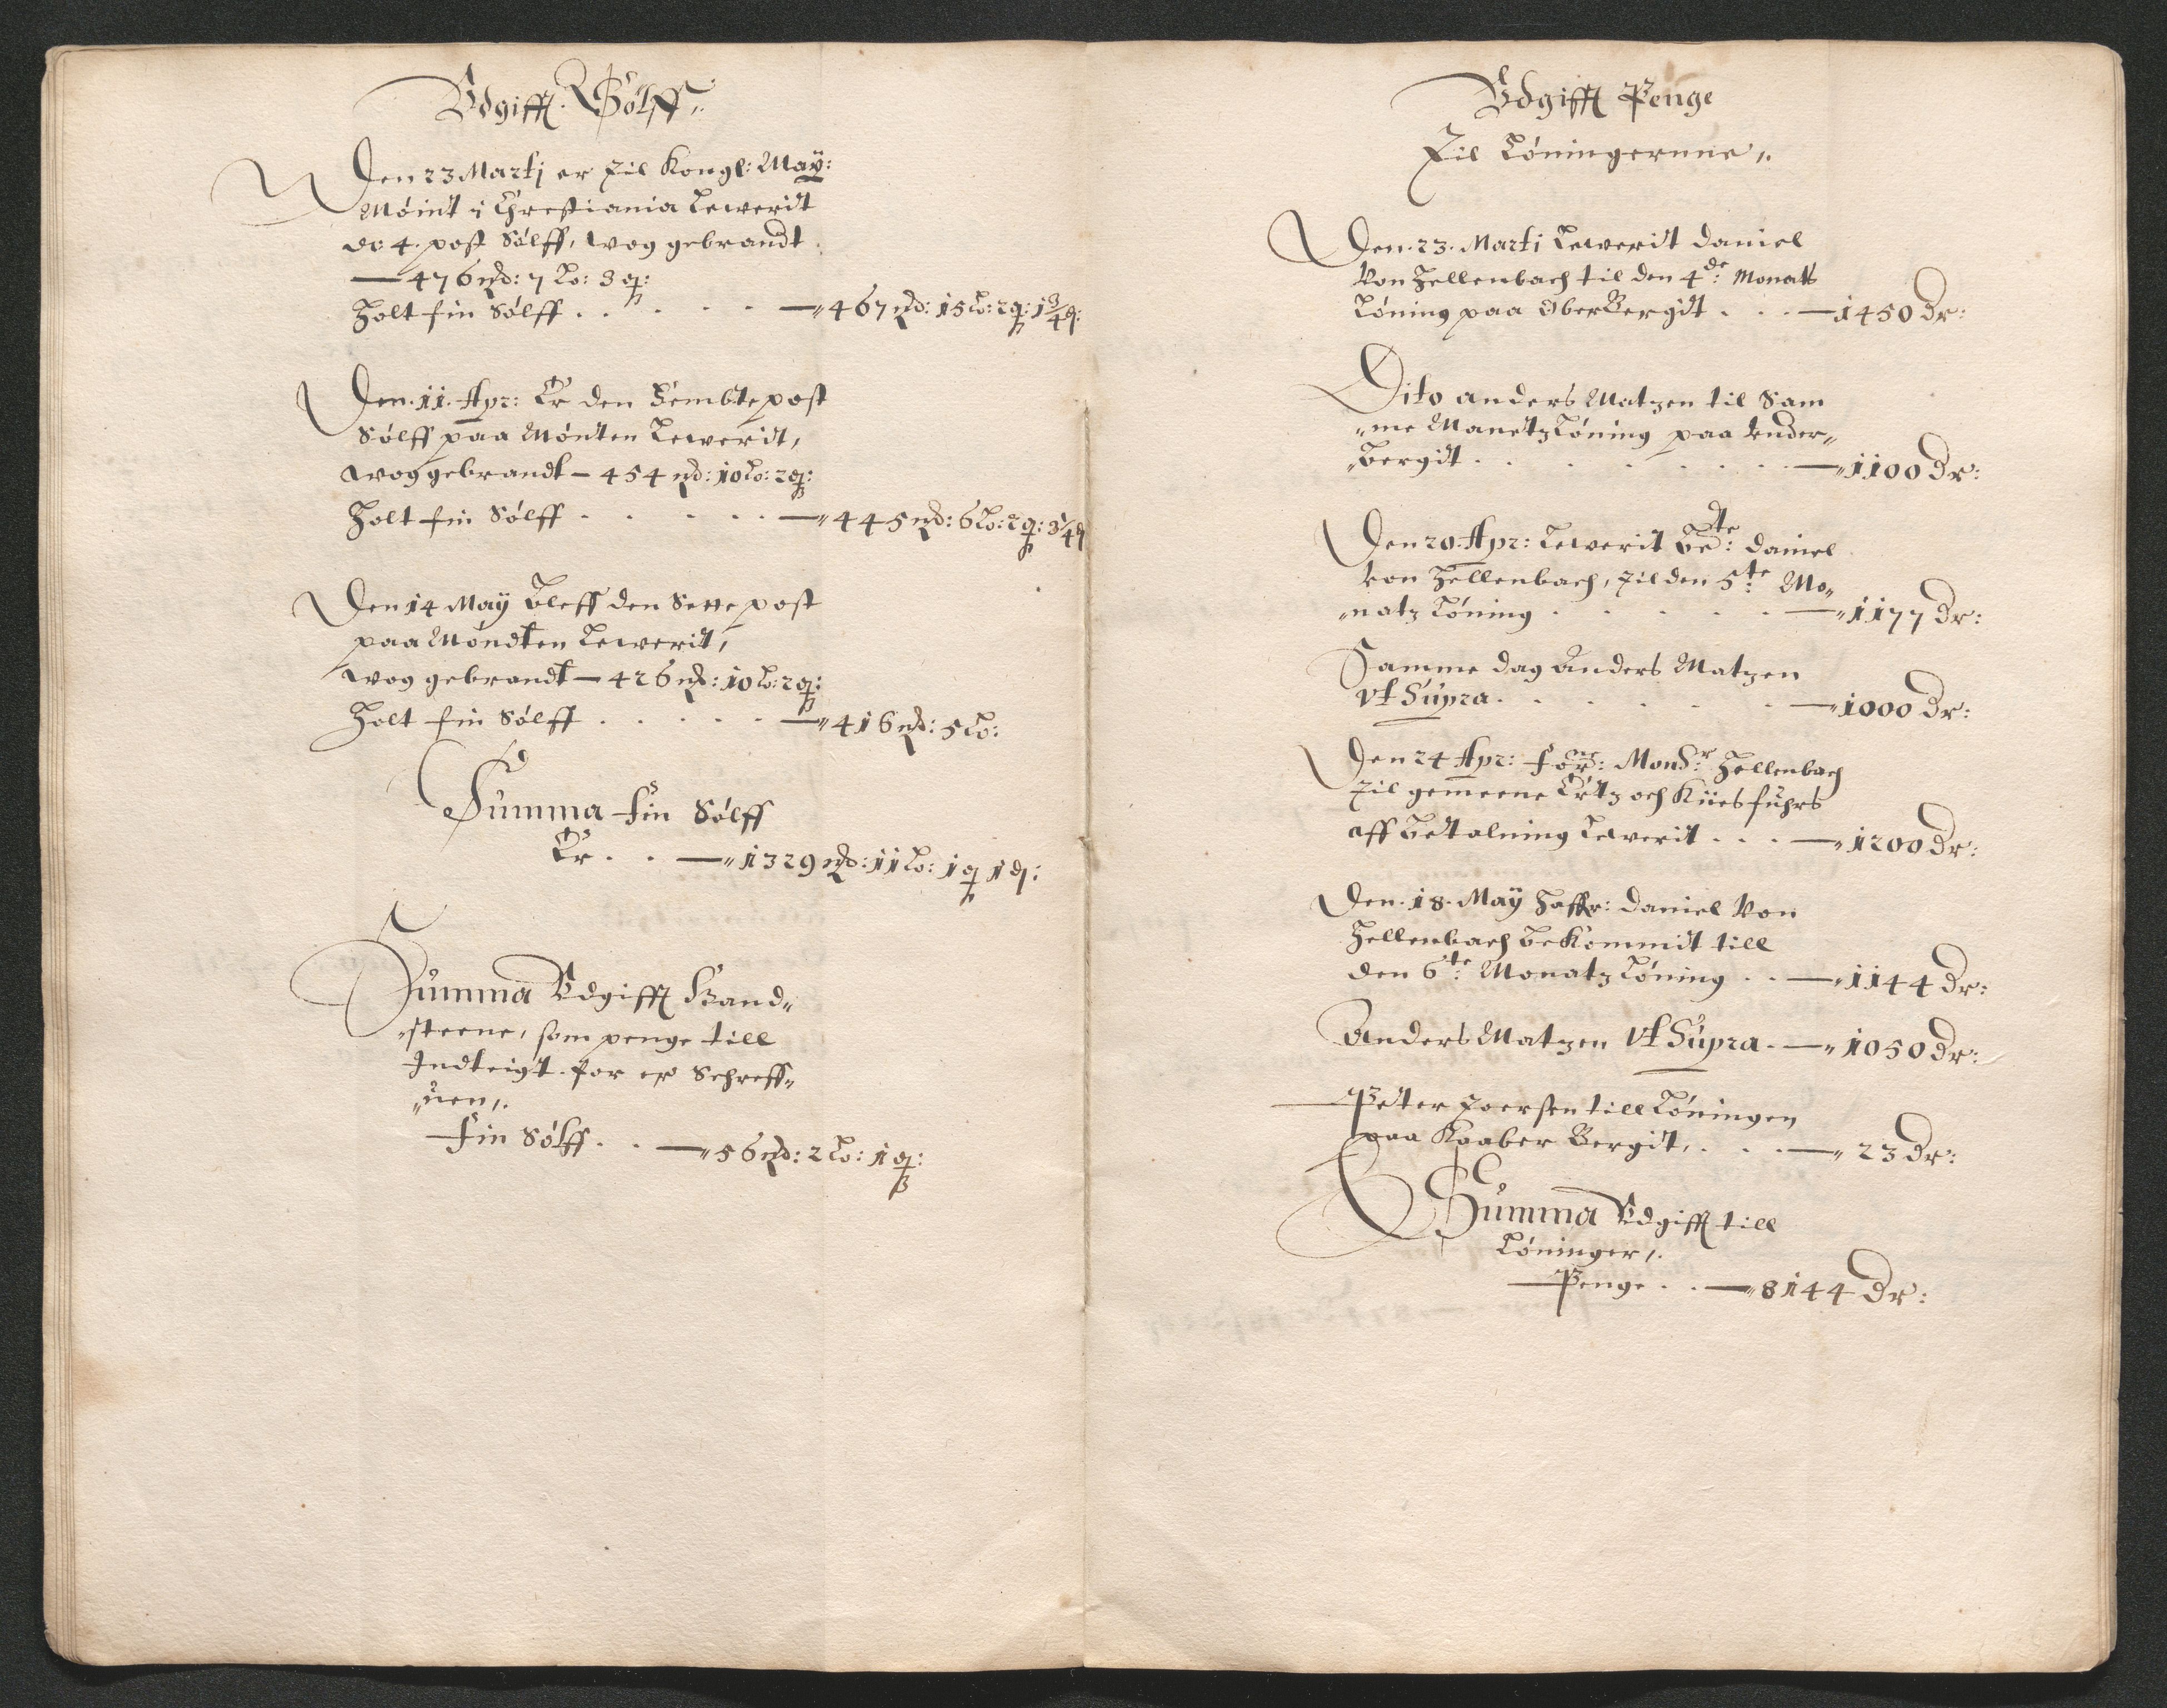 Vdgifft Sølff,.
Den 23 Martj er til Kongl: Maÿ:
Møint i Chrestiania Lewerit
do 4. post Sølff, wog gebrandt
— 476 m̃: 7 Lo: 3 q:
Holt fin Sølff . . . . . —"467 m̃: 15 Lo: 2 q: 1 3/4 d:
Den. 11. Apr: Er den Fembte post
Sølff paa Mønten Leweridt,
wog gebrandt — 454 m̃: 10 Lo: 2 q:
Holt fin Sølff . . . . . —"445 m̃: 6 Lo: 2 q: 3 1/4 d
Den 14 Maÿ Bleff den Sette post
paa Møndten Lewerit,
wog gebrandt — 426 m̃: 10 Lo: 2 q:
Holt fin Sølff . . . . . —"416 m̃: 5 Lo:
Summa fin Sølff
Er . . —"1329 m̃: 11 Lo: 1 q 1 d:
Summa Vdgifft Hand„
„steene, som penge till
Indteigt for er Schreff„
„uen,.
fin Sølff . . —"56 m̃: 2 Lo: 1 q:
Vdgifft Penge
Til Løningerne,.
Den. 23. Martj Leweridt Daniel
Von Hellenbach til den 4de: Monats
Løning paa OberBergit . . . —"1450 Dr:
Dito Anders Matzen til Sam
„me Manetz Løning paa Under„
„bergit . . . . . . . —"1100 Dr:
Den 20. Apr: Lewerit Bete: Daniel
von Hellenbach, til den 5te: Mo„
„natz Løning . . . . . —"1177 Dr:
Samme dag Anders Matzen
Vt Supra . . . . . —"1000 Dr:
Den 24 Apr: forne: Monsr: Hellenbach
til gemeene Ertz och Kiiesfuhrs
aff Betalning Lewerit . . . —"1200 Dr:
Den. 18. Maÿ Haffr: Daniel Von
Hellenbach Bekommit till
den 6te: Monatz Løning . . —"1144 Dr:
Anders Matzen Vt Supra . —"1050 Dr:
Peter Poersen till Løningen
paa Kaaber Bergit, . . . —"23 Dr:
Summa Vdgifft till
Løninger,.
Penge . . —"8144 Dr: